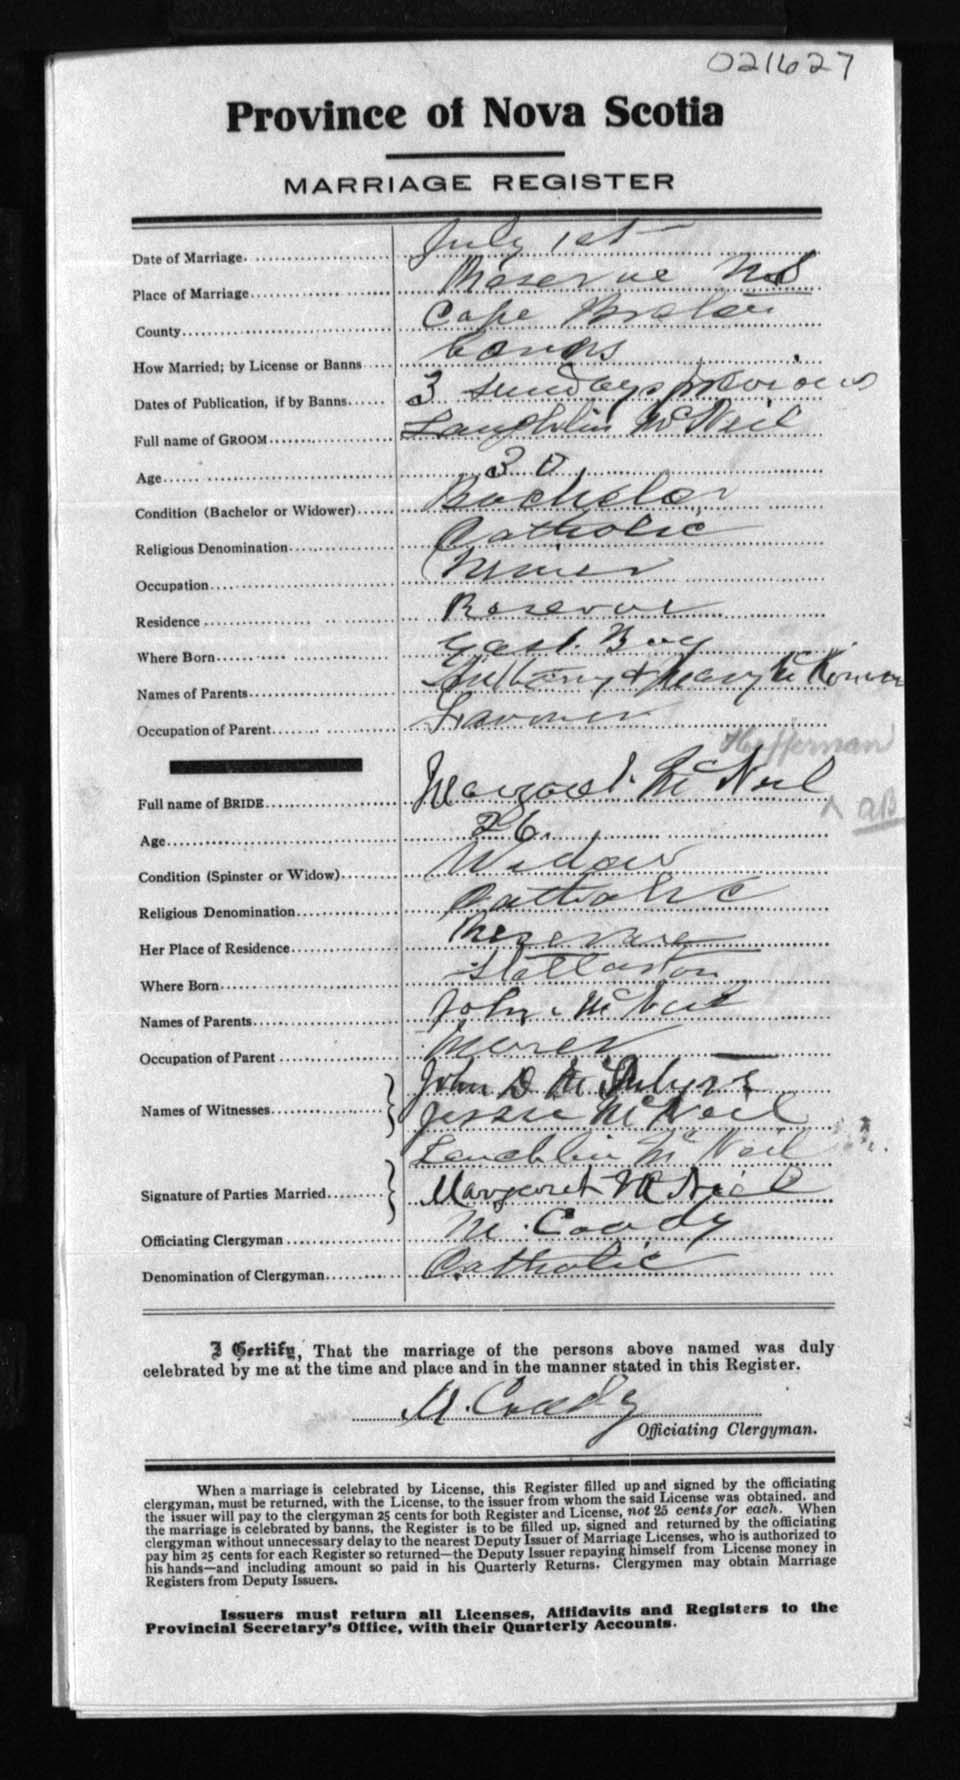 021627
Province of Nova Scotia
MARRIAGE REGISTER
Date of Marriage July 1st
Place of Marriage Reserve NS
County Cape Breton
How Married; by License or Banns banns
Dates of Publication, if by Banns 3 Sundays previous
Full name of GROOM Laughlin McNeil
Age 30
Condition (Bachelor or Widower) Bachelor
Religious Denomination Catholic
Occupation Miner
Residence Reserve
Where Born East Bay
Names of Parents Anthony & Mary Mc
Occupation of Parent Farmer
Heffernan
Full name of BRIDE Margaret McNeil
^ aB
Age 26
Condition (Spinster or Widow) Widow
Religious Denomination Catholic
Her Place of Residence Reserve
Where Born Stellarton
Names of Parents John McNeil
Occupation of Parent
Names of Witnesses John D
Jessie McNeil
Signature of Parties Married Lauchlin McNeil
Margaret McNeil
Officiating Clergyman M. Coady
Denomination of Clergyman Catholic
I Certify, That the marriage of the persons above named was duly
celebrated by me at the time and place and in the manner stated in this Register.
M. Coady
Officiating Clergyman.
When a marriage is celebrated by License, this Register filled up and signed by the officiating
clergyman, must be returned, with the License, to the issuer from whom the said License was obtained, and
the issuer will pay to the clergyman 25 cents for both Register and License, not 25 cents for each. When
the marriage is celebrated by banns, the Register is to be filled up, signed and returned by the officiating
clergyman without unnecessary delay to the nearest Deputy Issuer of Marriage Licenses, who is authorized to
pay him 25 cents for each Register so returned—the Deputy Issuer repaying himself from License money in
his hands—and including amount so paid in his Quarterly Returns. Clergymen may obtain Marriage
Registers from Deputy Issuers.
Issuers must return all Licenses, Affidavits and Registers to the
Provincial Secretary's Office, with their Quarterly Accounts.